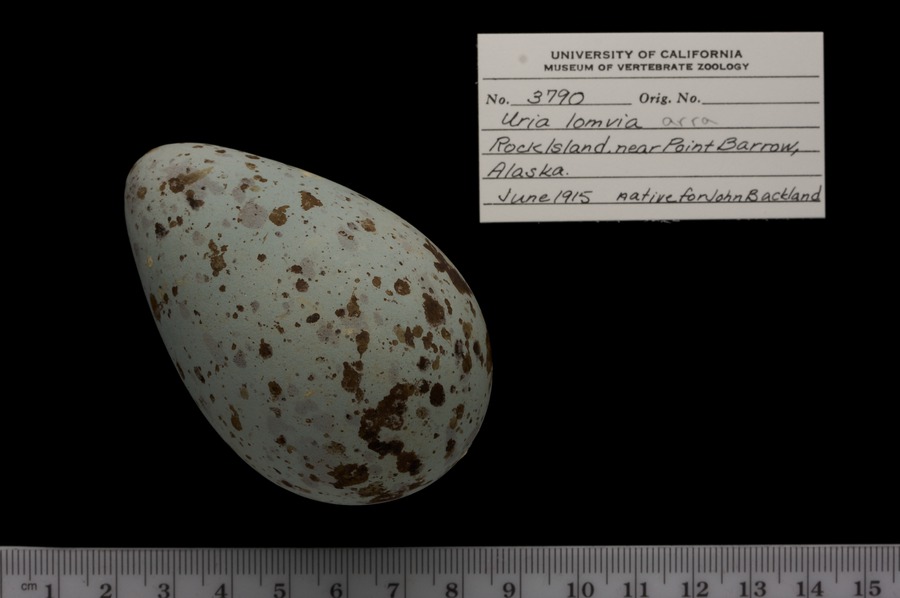 UNIVERSITY OF CALIFORNIA
MUSEUM OF VERTEBRATE ZOOLOGY
No. 3790 Orig. No.
Uria lomvia arra
Rock Island, near Point Barrow,
Alaska.
June 1915 native for John Backland
cm 1 2 3 4 5 6 7 8 9 10 11 12 13 14 15